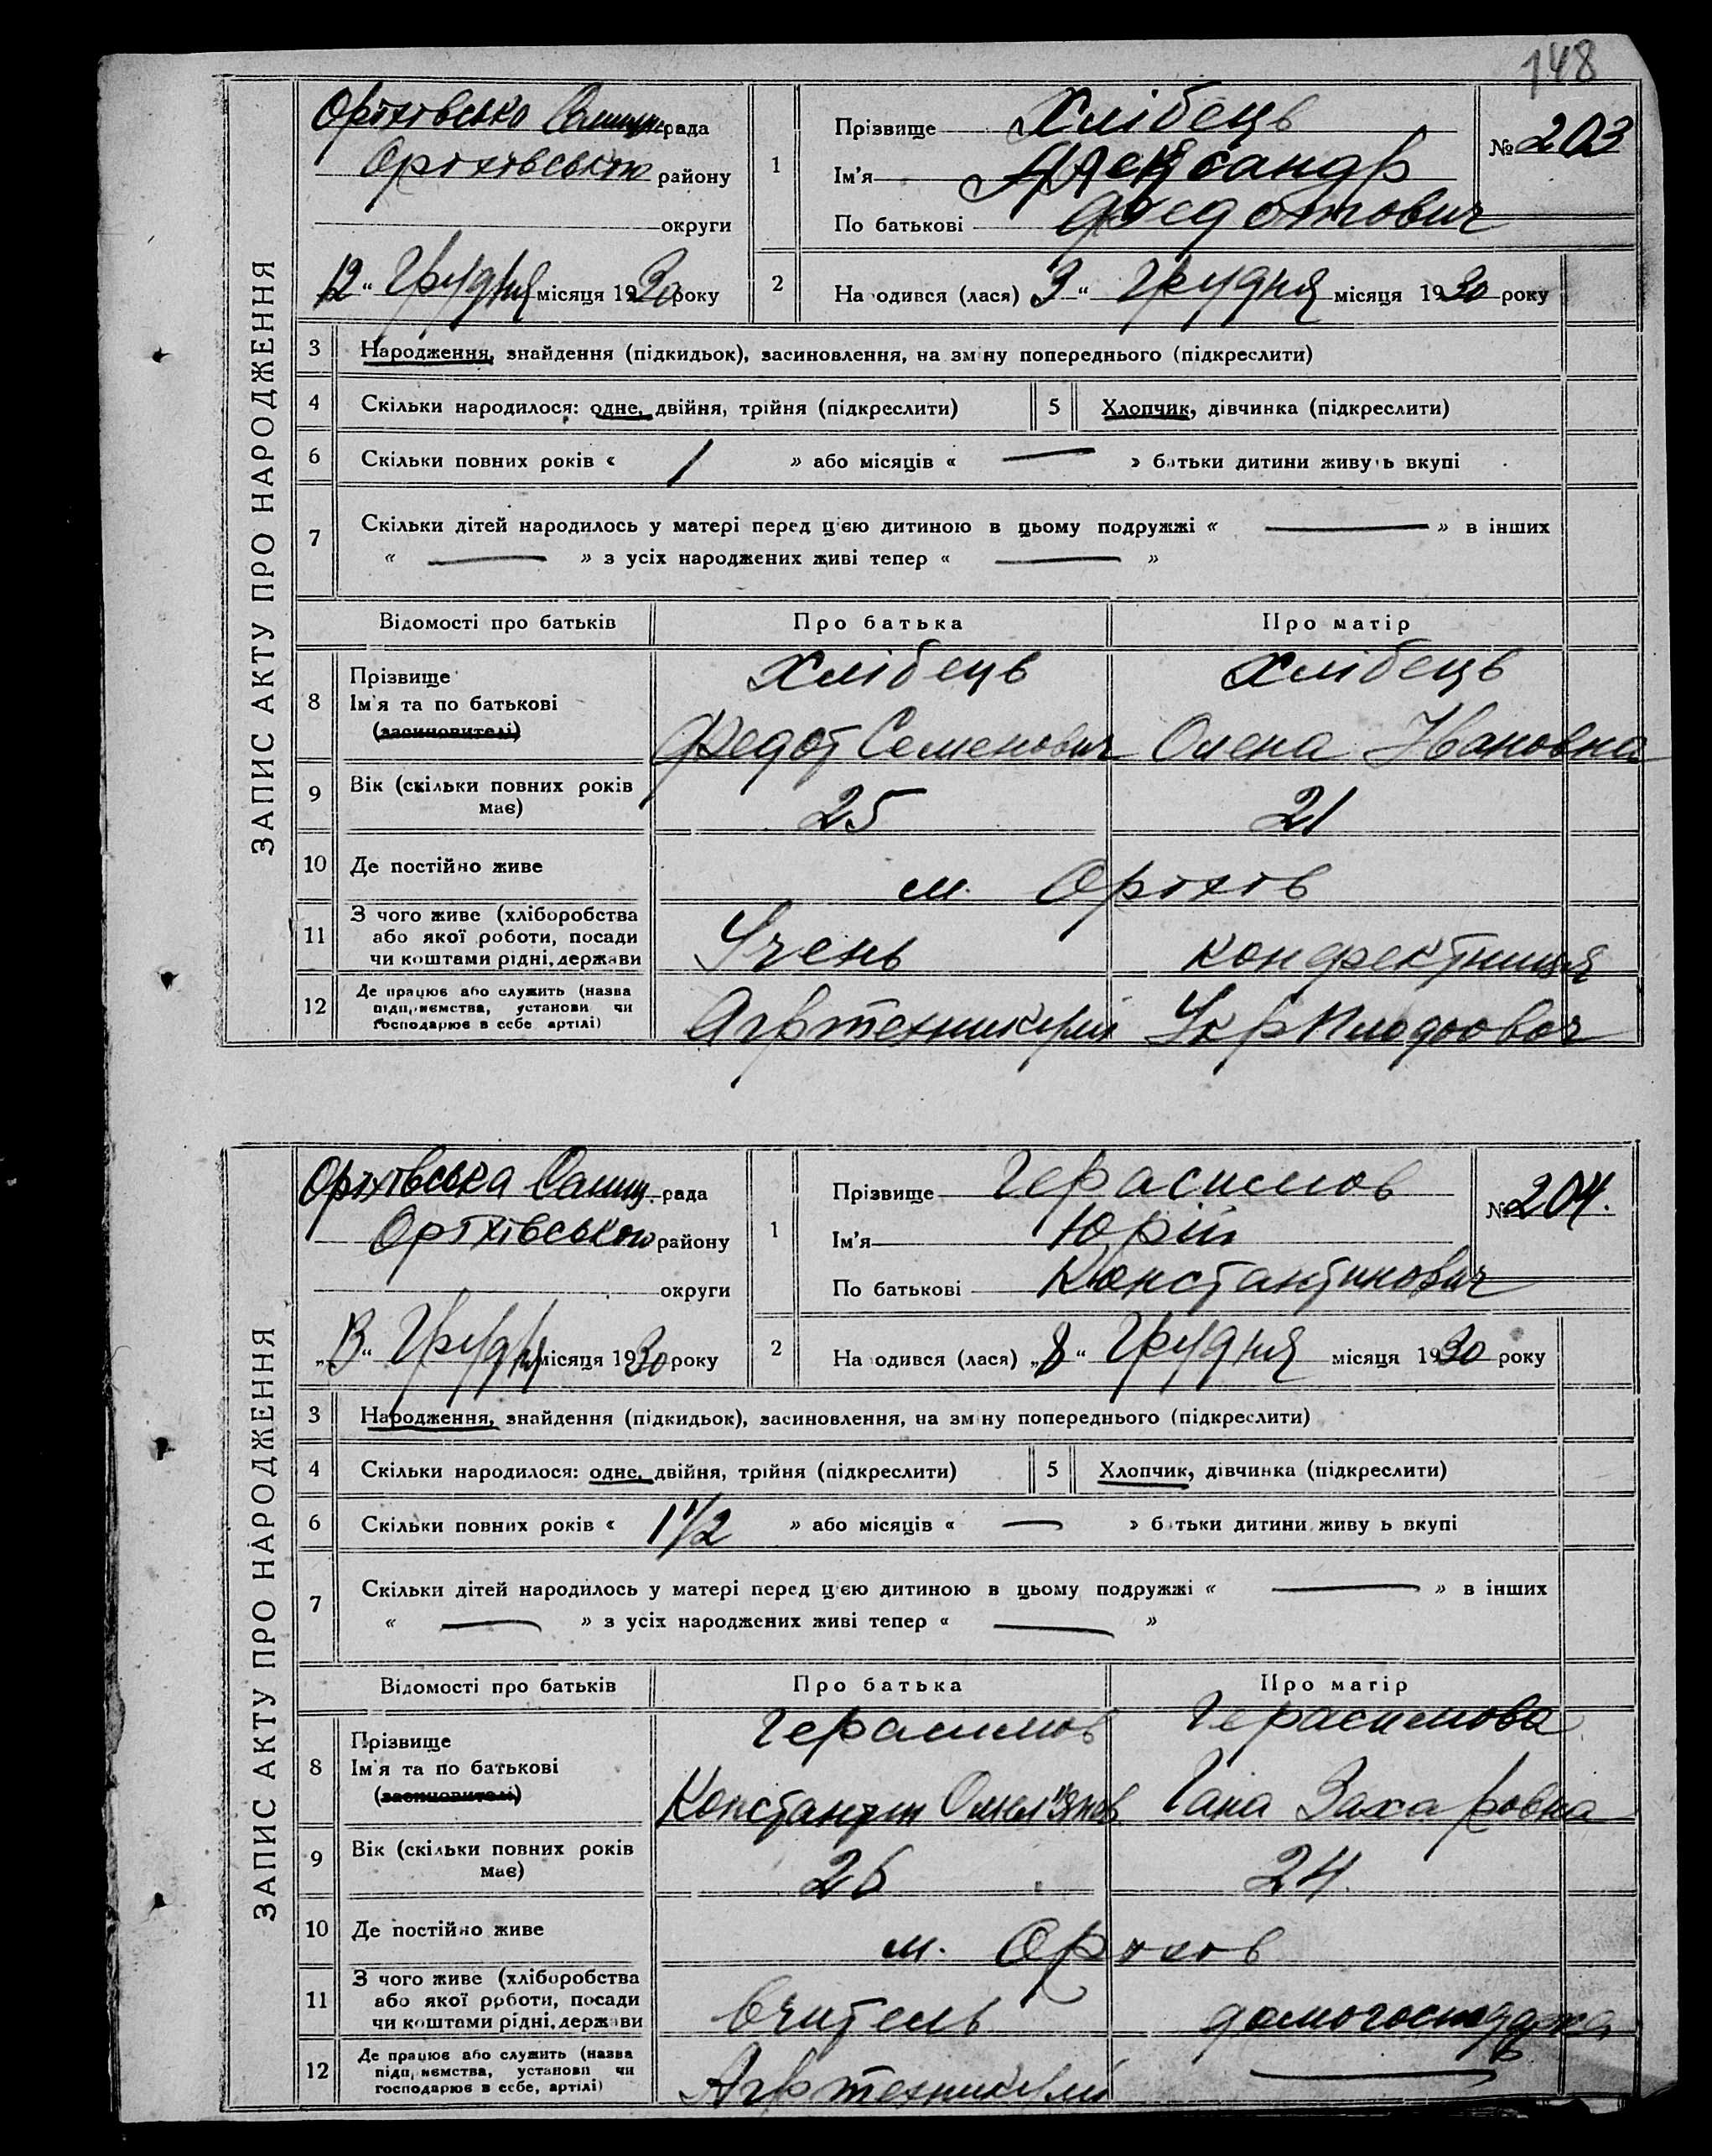 148
ЗАПИС АКТУ ПРО НАРОДЖЕННЯ
Оріхівсько Селищн. рада
Оріхівського району
округи
12 " Грудня місяця 1930 року
1
Прізвище Хлібець
Ім'я Александр
По батькові Федотович
№ 203
2
На одився (лася) 3 " Грудня місяця 1930 року
3 Народження, знайдення (підкидьок), засиновлення, на зміну попереднього (підкреслити)
4 Скільки народилося: одне, двійня, трійня (підкреслити) 5 Хлопчик, дівчинка (підкреслити)
6 Скільки повних років « 1 » або місяців « — » батьки дитини живуть вкупі
7 Скільки дітей народилось у матері перед цією дитиною в цьому подружжі « — » в інших
« — » з усіх народжених живі тепер « — »
Відомості про батьків Про батька Про матір
8 Прізвище Ім'я та по батькові (засиновителі)
Хлібець Хлібець
Федот Семенович Олена Івановна
9 Вік (скільки повних років має) 25 21
10 Де постійно живе м. Оріхів
11 З чого живе (хліборобства
або якої роботи, посади
чи коштами рідні, держави
Учень конфектниця
12 Де працює або служить (назва
підприємства, установи чи
господарює в себе артілі)
Агртехникумі УкрПлодоовоч
ЗАПИС АКТУ ПРО НАРОДЖЕННЯ
Оріхівська Селищ. рада
Оріхівського району
округи
„ 13 " Грудня місяця 1930 року
1
Прізвище Герасимов
Ім'я Юрій
По батькові Константинович
№ 204.
2
На одився (лася) „ 8 " Грудня місяця 1930 року
3 Народження, знайдення (підкидьок), засиновлення, на зміну попереднього (підкреслити)
4 Скільки народилося: одне, двійня, трійня (підкреслити) 5 Хлопчик, дівчинка (підкреслити)
6 Скільки повних років « 1 1/2 » або місяців « — » батьки дитини живуть вкупі
7 Скільки дітей народилось у матері перед цією дитиною в цьому подружжі « — » в інших
« — » з усіх народжених живі тепер « — »
Відомості про батьків Про батька Про матір
8 Прізвище Ім'я та по батькові (засиновителі)
Герасимов Герасимова
Константин Омел'янов Гана Захаровна
9 Вік (скільки повних років має) 26 24
10 Де постійно живе м. Оріхів
11 З чого живе (хліборобства
або якої роботи, посади
чи коштами рідні, держави
вчитель домогосподарка
12 Де працює або служить (назва
підприємства, установи чи
господарює в себе, артілі)
Агртехникумі —